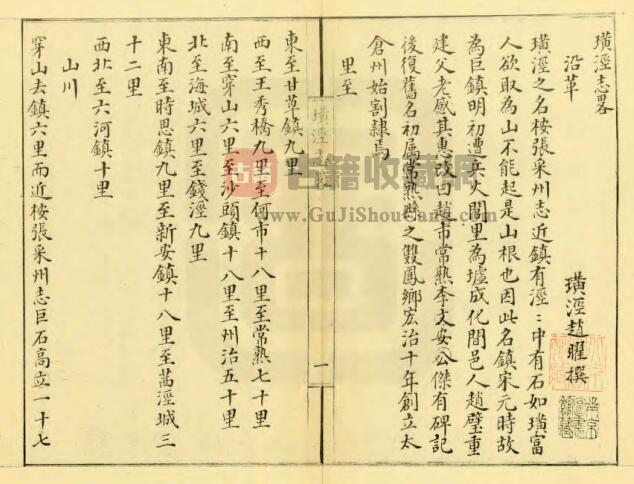 璜涇志畧
璜涇趙曜撰
沿革
璜涇之名桉張采州志近鎮有涇：中有石如璜富
人欲取為山不能起是山根也因此名鎮宋元時故
為巨鎮明初遭兵火閭里為墟成化間邑人趙璧重
建父老感其惠改曰趙市常熟李文安公傑有碑記
後復舊名初属常熟縣之雙鳳鄉宏治十年創立太
倉州始割隷焉
里至
東至甘草鎮九里
西至王秀橋九里至何市十八里至常熟七十里
南至穿山六里至沙頭鎮十八里至州治五十里
北至海城六里至錢涇九里
東南至時思鎮九里至新安鎮十八里至茜涇城三
十二里
西北至六河鎮十里
山川
穿山去鎮六里而近桉張采州志巨石高立一十七
璜涇志
一
南京圖書館藏
古籍收藏網
www.GuJiShouCang.com